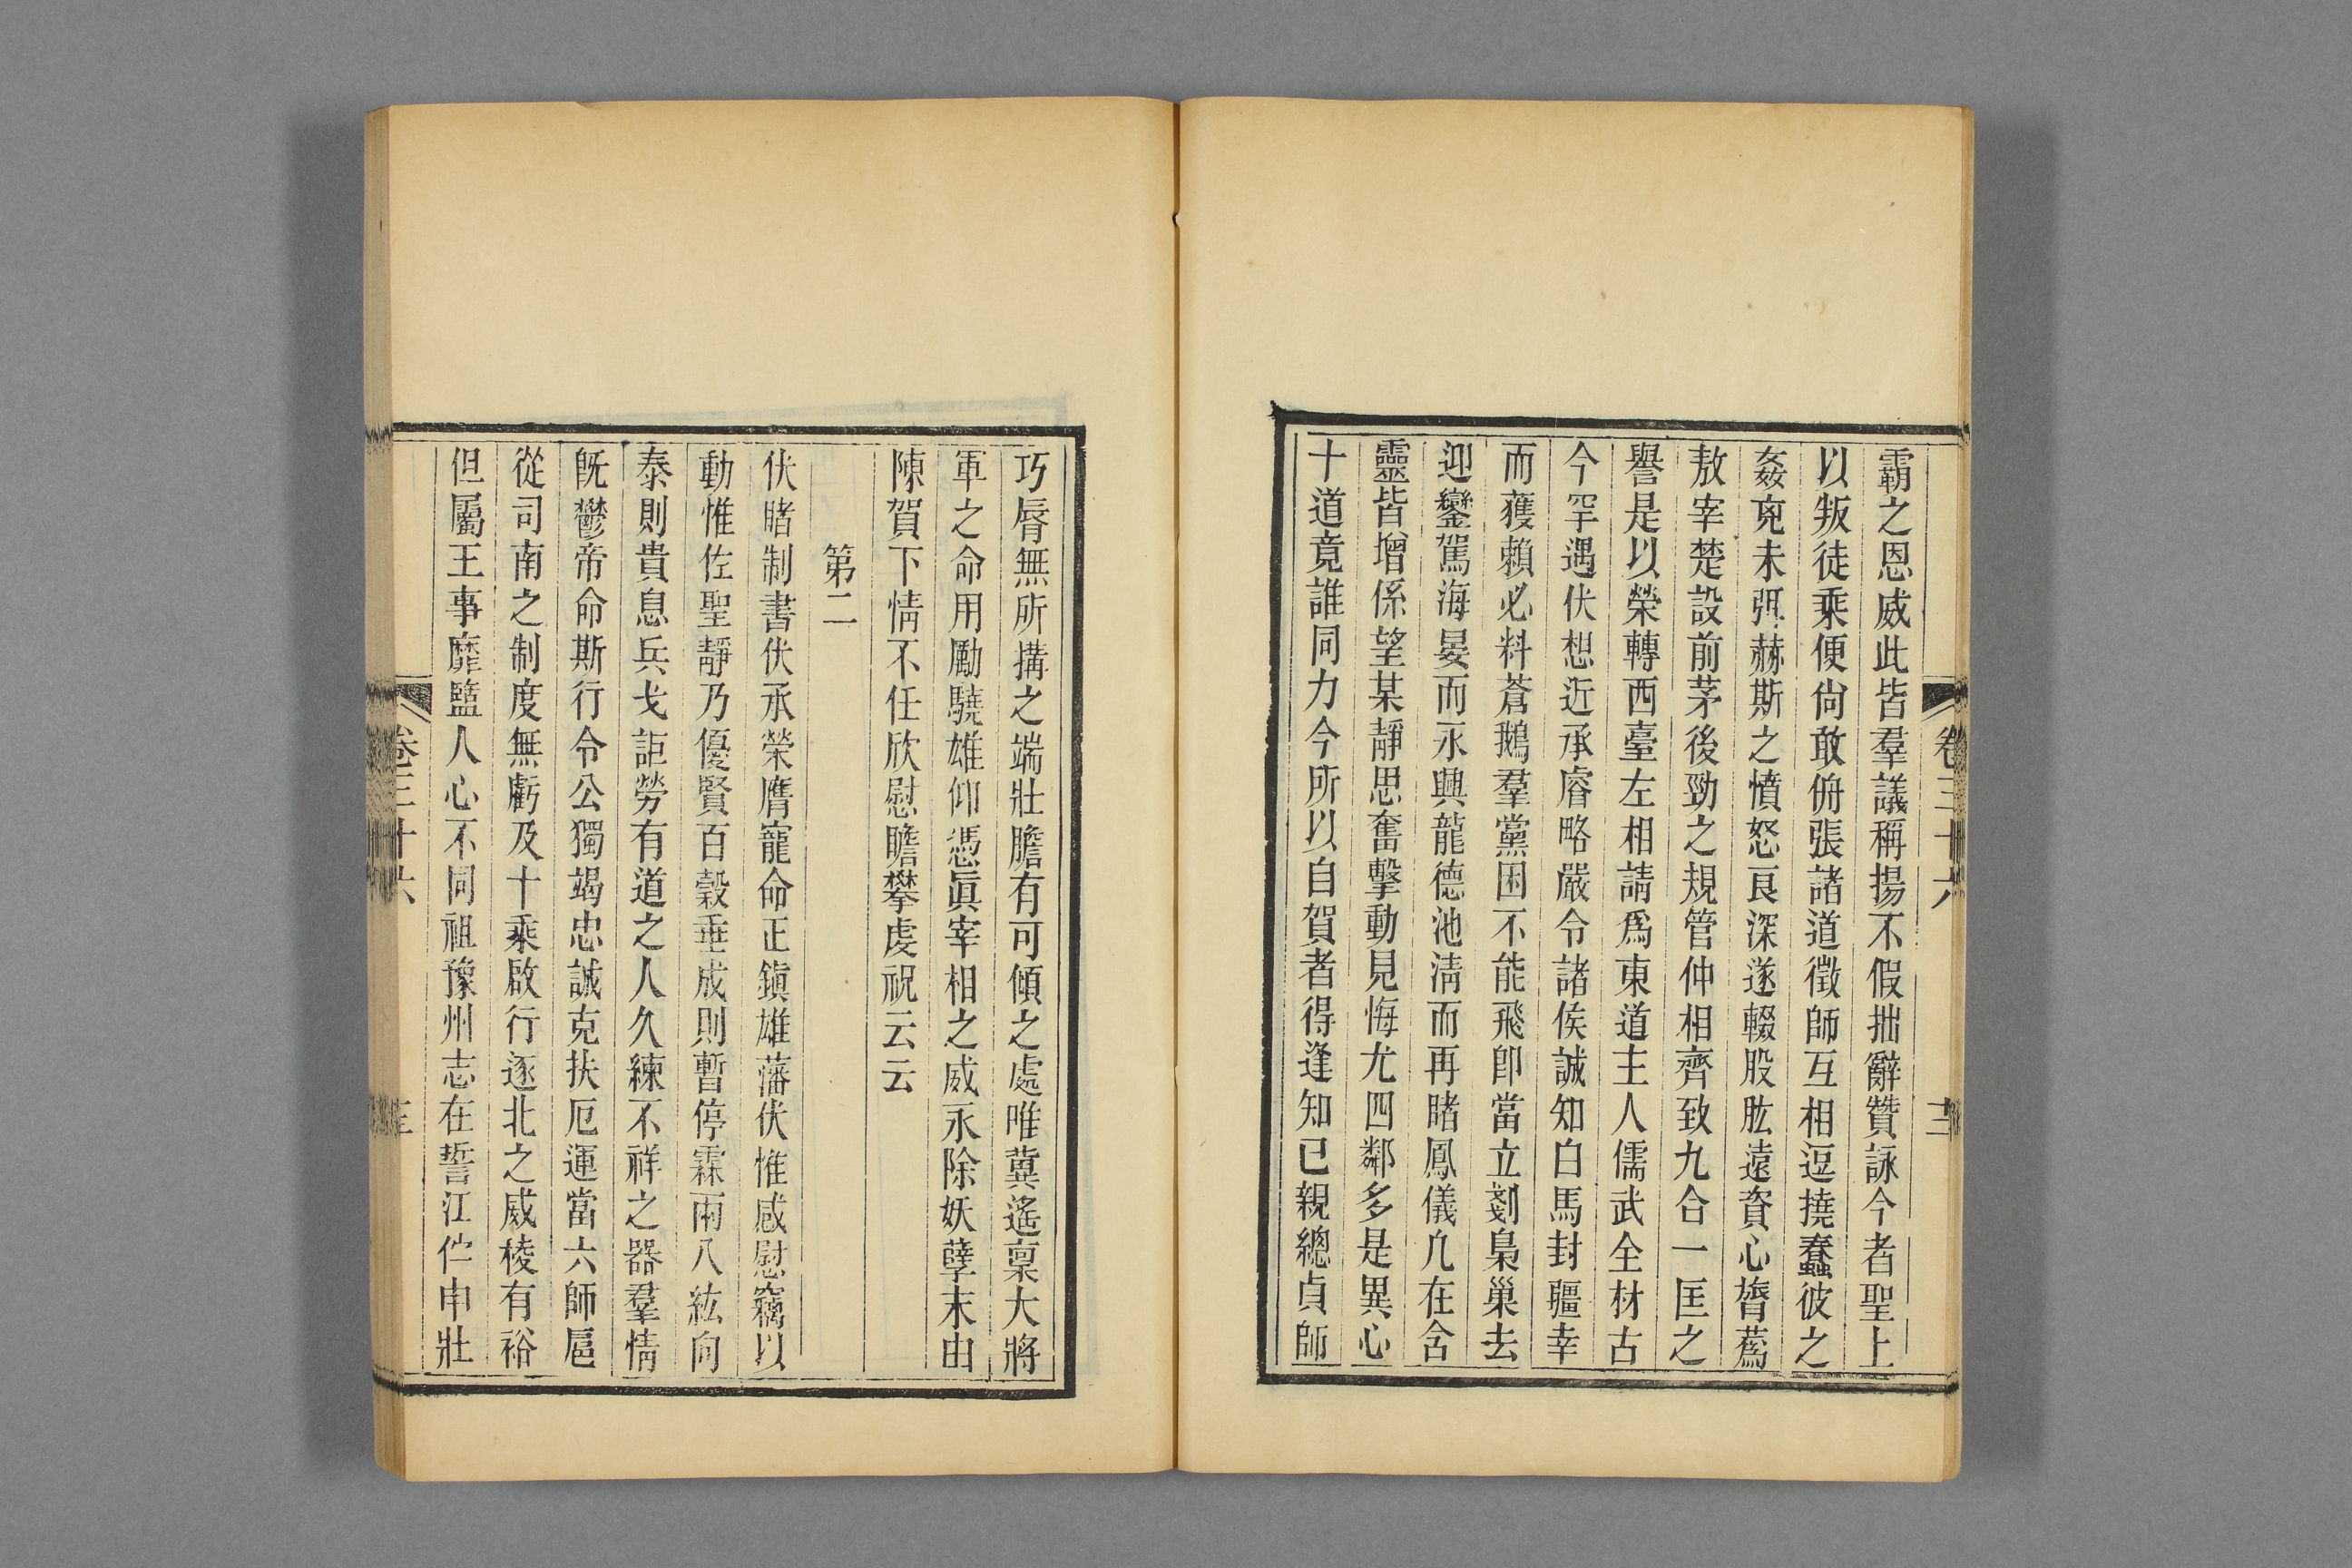 霸之恩威此皆羣議稱揚不假拙辭贊詠今者聖上
以叛徒乘便尙敢侜張諸道徵師互相逗撓蠢彼之
姦兇未弭赫斯之憤怒艮深遂輟股肱遠資心膂蔿
敖宰楚設前茅後勁之規管仲相齊致九合一匡之
譽是以榮轉西臺左相請爲東道主人儒武全材古
今罕遇伏想近承睿略嚴令諸侯誠知白馬封疆幸
而獲賴必料蒼鵝羣黨困不能飛卽當立剗梟巢去
迎鑾駕海晏而永興龍德池淸而再睹鳳儀凡在含
靈皆增係望某靜思奮擊動見悔尤四鄰多是異心
十道竟誰同力今所以自賀者得逢知已親總貞師
卷三十六
十二
巧脣無所搆之端壯膽有可傾之處唯冀遙稟大將
軍之命用勵驍雄仰憑眞宰相之威永除妖孽末由
陳賀下情不任欣慰瞻攀虔祝云云
第二
伏睹制書伏承榮膺寵命正鎭雄藩伏惟感慰竊以
動惟佐聖靜乃優賢百穀垂成則暫停霖雨八紘向
泰則貴息兵戈詎勞有道之人久練不祥之器羣情
旣鬱帝命斯行令公獨竭忠誠克扶厄運當六師扈
從司南之制度無虧及十乘啟行逐北之威棱有裕
但屬王事靡盬人心不同祖豫州志在誓江伫申壯
卷三十六